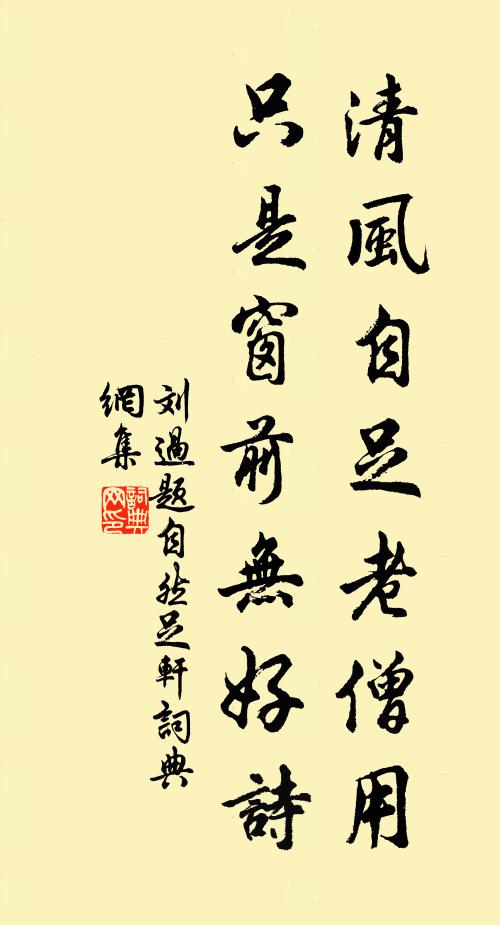 清風自足老僧用
只是窗前無好詩
刘過題自然足軒詞典
網集
詞典网印